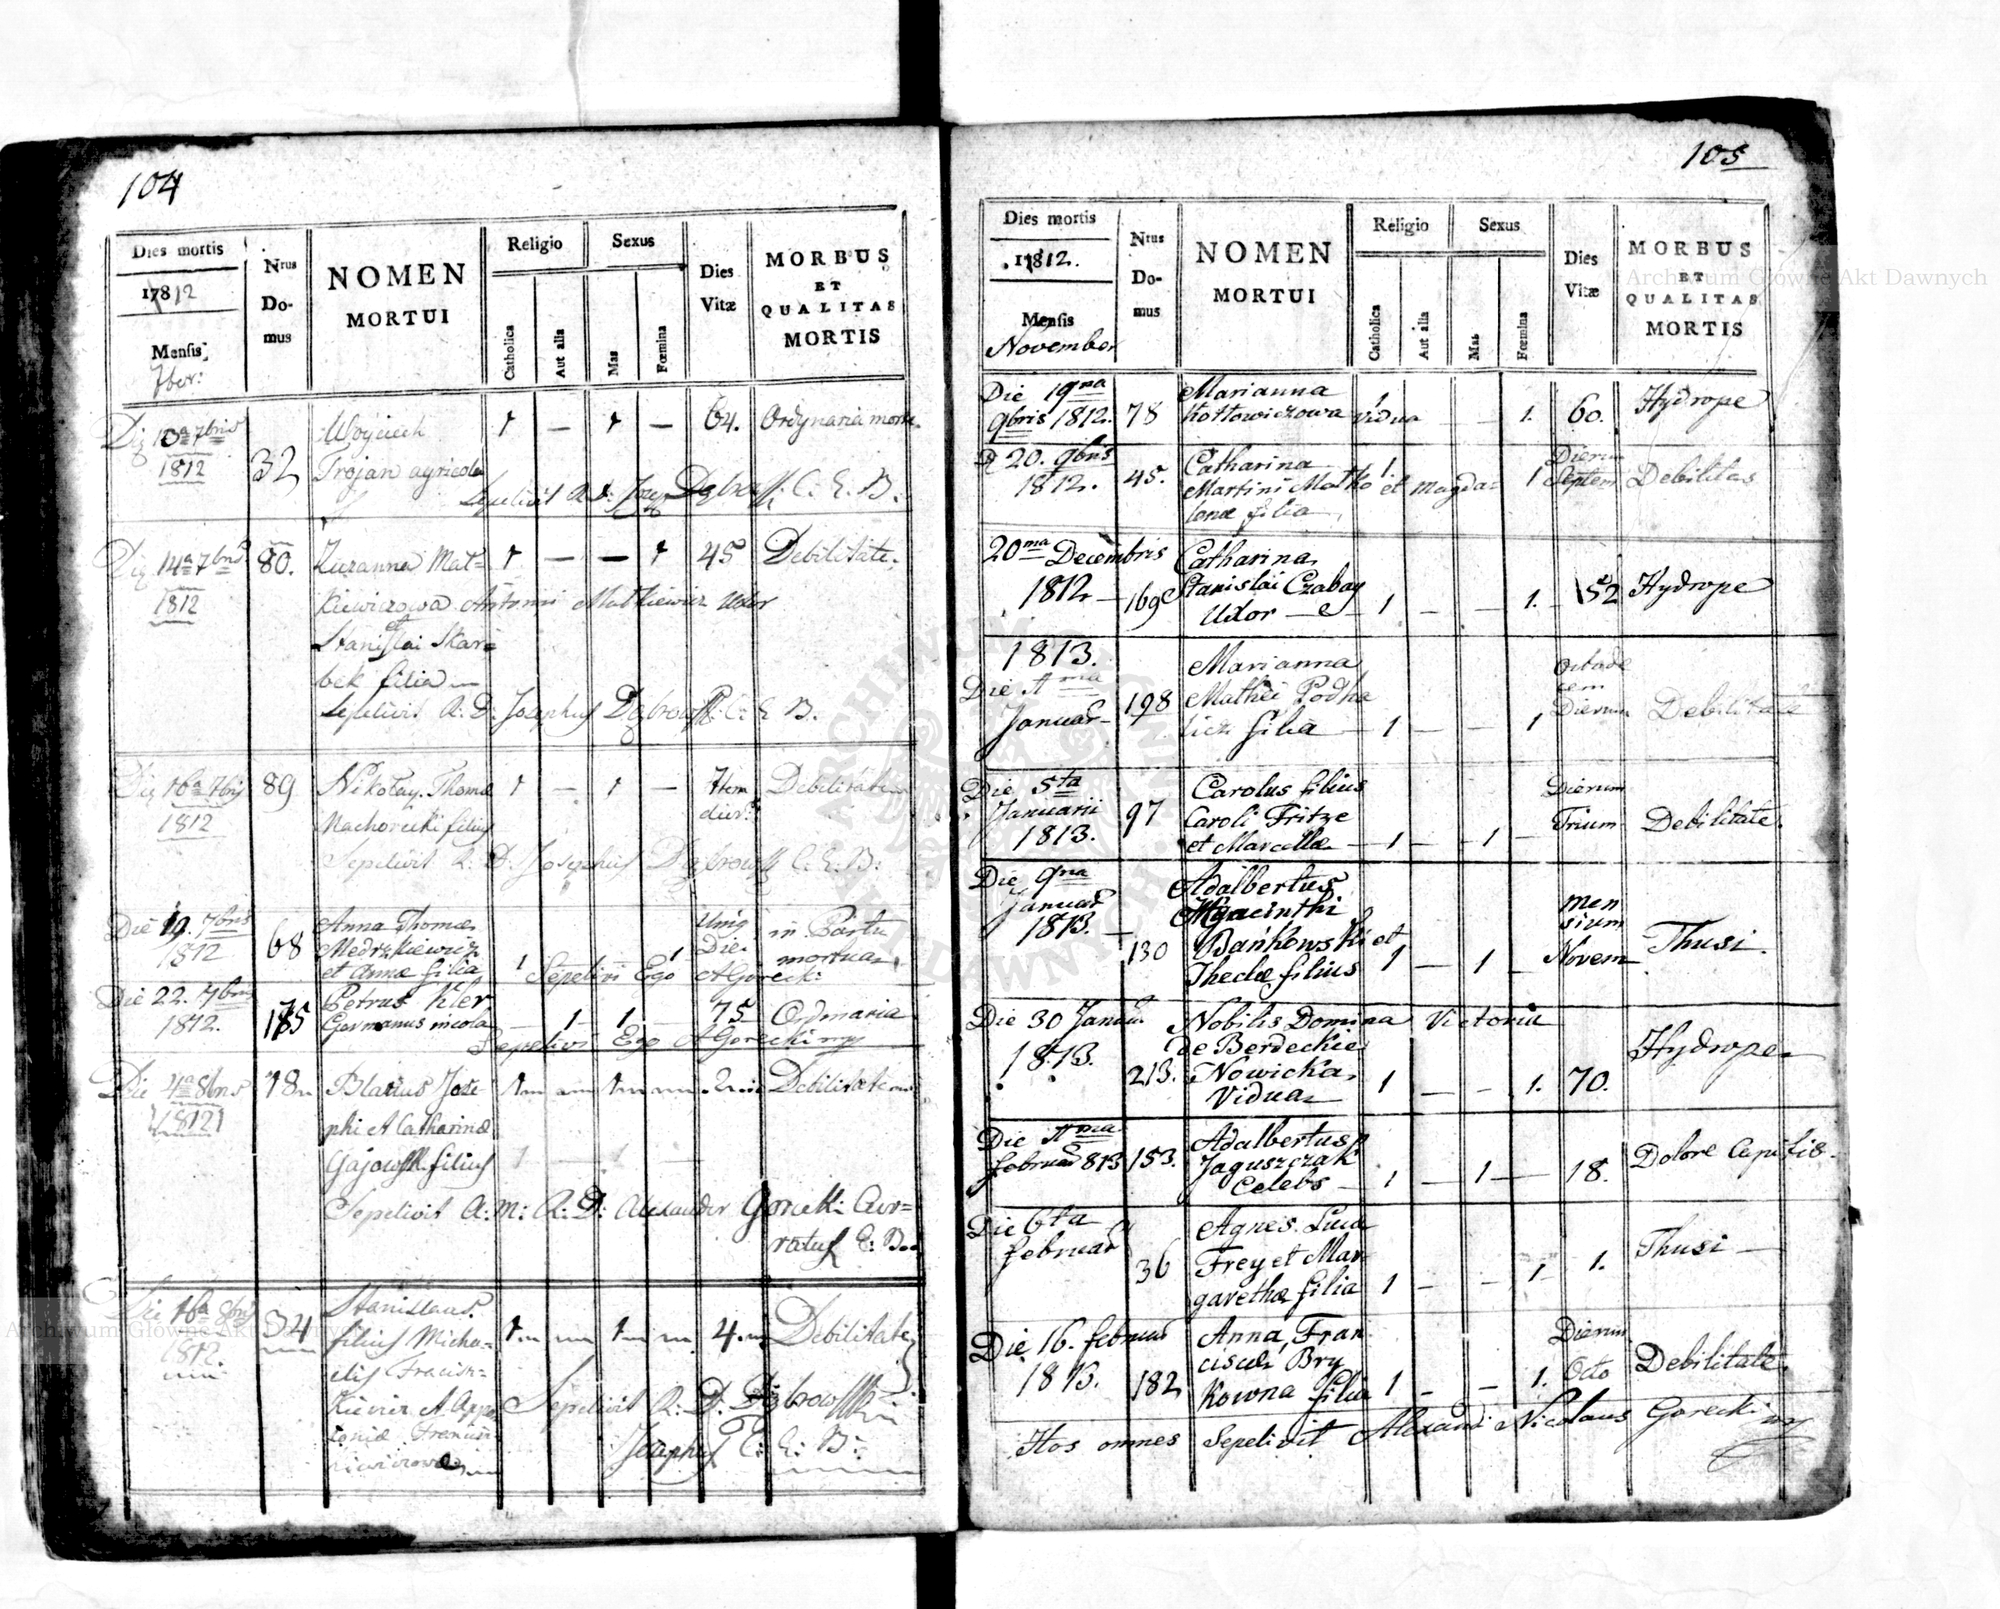 104
Dies mortis
17812
Mensis
7ber:
Nrus Do-mus
NOMEN
MORTUI
Religio
Catholica
Aut alia
Sexus
Mas
Fœmina
Dies
Vitæ
MORBUS
ET
QUALITAS
MORTIS
1812
32
Woyciech
Trojan agricola
1 — 1 —
64.
Ordynaria morte
Sepelivit
C. E. B.
Die 14a 7bris
1812
80.
Zuzanna Mat-
kiewiczowa Antoni Matkiewicz Uxor
et
Stanislai Skar-
bek filia
1 — — 1
45
Debilitate.
Sepelivit R. D. Josephus C: E B.
1812
89
Nikolay Thomæ
Machorecki filius
1 — 1 —
Debilitate
Sepelivit R: D: Josephus C. E. B:
Die 19. 7bris
1812
68
Anna Thomæ
Medrzkiewicz
et Annæ filia
1 1
Die
in Partu
mortua
Sepelivi Ego AGorecki
Die 22. 7bris
1812.
175
Petrus
Germanus incola
— 1 — 1 —
75
Ordinaria
Sepelivi Ego AGorecki
Die 4a 8bris
1812
18
Blasius Jose-
phi et Catharinæ
filius
2
Debilitate
Sepelivit A: M: R: D: Alexander Gorecki Cur-
ratus E: B.
1812.
34
Stanislaus
filius Micha-
elis
4.
Debilitate
Sepelivit R: D.
Josephus C: E: B:
105
Dies mortis
17812.
Mensis
November
Nrus Do-mus
NOMEN
MORTUI
Religio
Catholica
Aut alia
Sexus
Mas
Fœmina
Dies
Vitæ
MORBUS
ET
QUALITAS
MORTIS
Die 19na
9bris 1812.
78
Marianna
Kottowiczowa Vidua
1. — 1.
60.
Hydrope
D 20. 9bris
1812.
45.
Catharina
Martini Matko et Magda-
lenæ filia
1. 1
Dierum
Septem
Debilitas
20ma Decembris
1812
169
Catharina
Stanislai Czabay
Uxor
1 — — 1.
52
Hydrope
1813.
Die 1ma
Januar
198
Marianna
Mathei Podha
licz filia
1 — — 1
Octode
cem
Dierum
Debilitate
Die 5ta
Januarii
1813.
97
Carolus filius
Caroli Fritze
et Marcellæ
1 — 1 —
Dierum
Trium
Debilitate.
Die 9na
Januar
1813.
130
Adalbertus
Hyacinthi
Bańkowski et
Theclæ filius
1 — 1 —
men
sium
Novem
Thusi.
Die 30 Januar
1813.
213.
Nobilis Domina Victoria
de Berdeckie
Nowicka
Vidua
1 — — 1.
70.
Hydrope
Die 1ma
februar 813
153.
Adalbertus
Jaguszczak
Celebs
1 — 1 —
18.
Dolore Capitis
Die 6ta
februar
36
Agnes Luca
Frey et Mar
garethæ filia
1 — — 1
1.
Thusi
Die 16. februar
1813.
182
Anna Fran
cisci Bry
kowna filia
1 — — 1.
Dierum
Octo
Debilitate.
Hos omnes Sepelivit Alexand Nicolaus Gorecki
Archiwum Główne Akt Dawnych
Archiwum Główne Akt Dawnych
ARCHIWUM GŁÓWNE AKT DAWNYCH